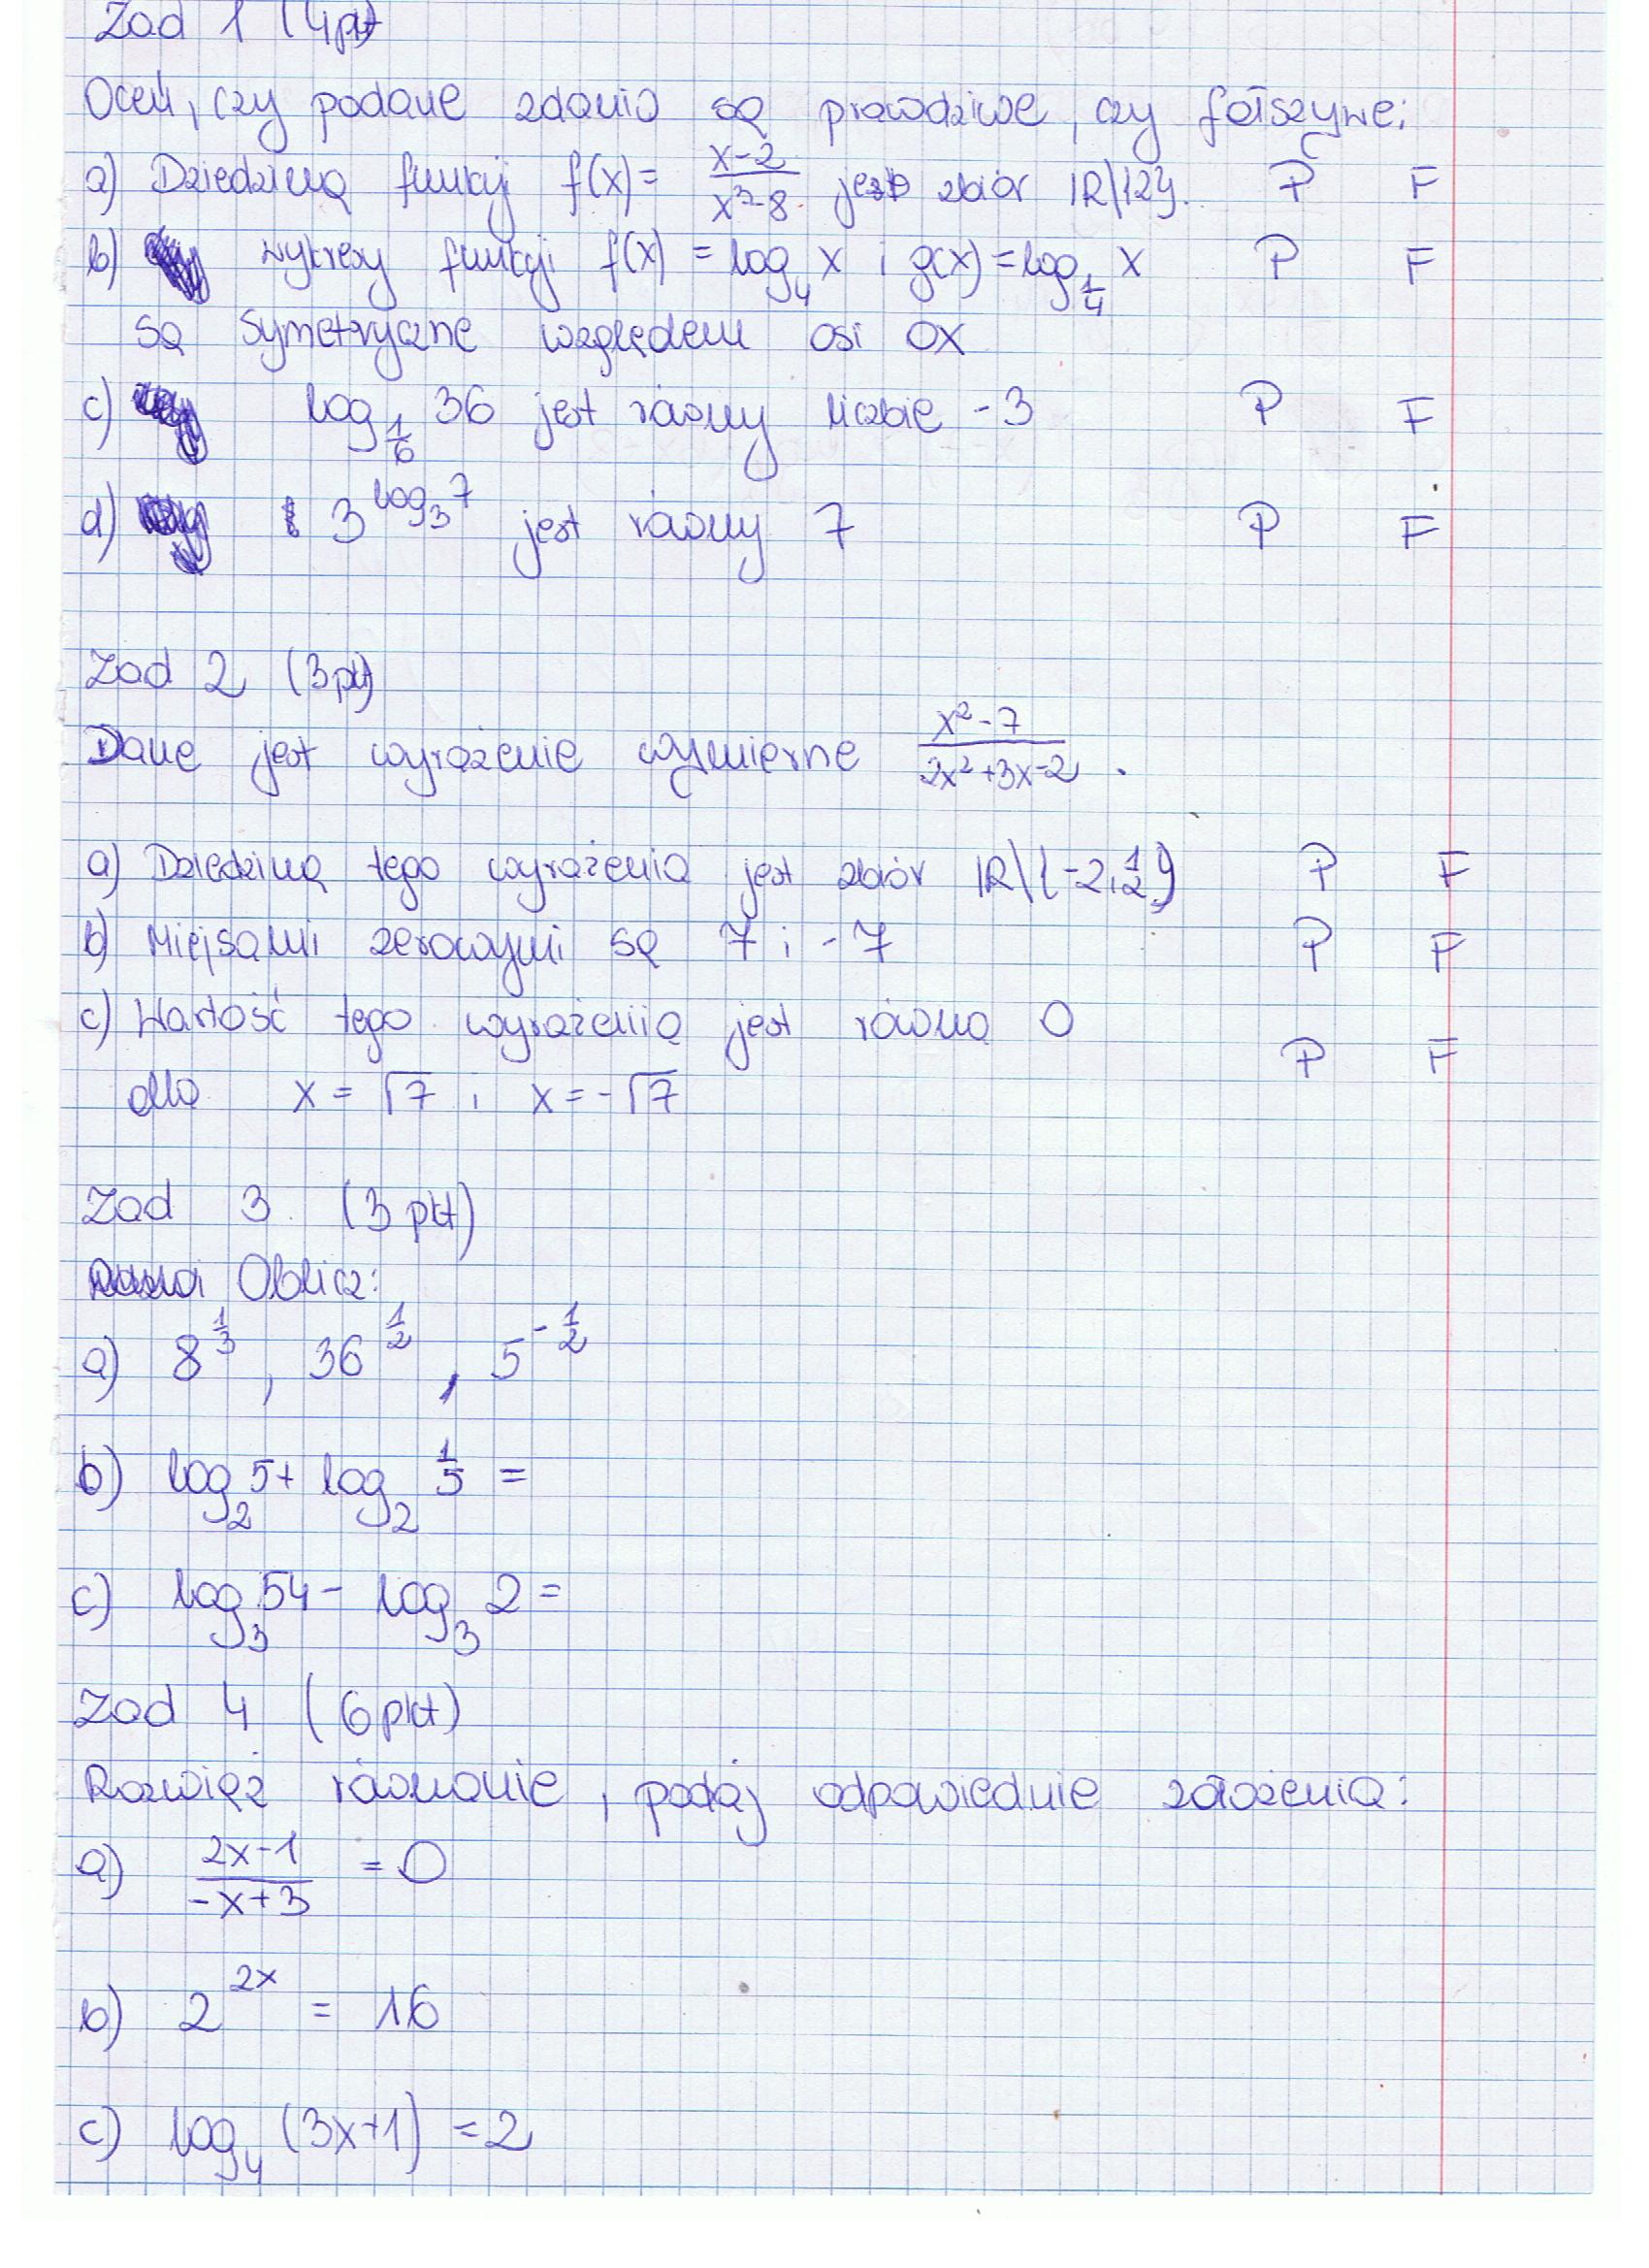 Zad 1 (4pkt)
Oceń, czy podane zdania są prawdziwe, czy fałszywe:
a) Dziedziną funkcji f(x) = \frac{x-2}{x^3-8} jest zbiór R\{2}. P F
b) wykresy funkcji f(x) = log_4 x i g(x) = log_{\frac{1}{4}} x P F
są symetryczne względem osi OX
c) log_{\frac{1}{6}} 36 jest równy liczbie -3 P F
d) 3^{log_3 7} jest równy 7 P F
Zad 2 (3pkt)
Dane jest wyrażenie wymierne \frac{x^2-7}{2x^2+3x-2}.
a) Dziedziną tego wyrażenia jest zbiór R\{-2, \frac{1}{2}} P F
b) Miejscami zerowymi są 7 i -7 P F
c) Wartość tego wyrażenia jest równa 0 P F
dla x = √7 i x = -√7
Zad 3 (3 pkt)
Oblicz:
a) 8^{\frac{1}{3}}, 36^{\frac{1}{2}}, 5^{-\frac{1}{2}}
b) log_2 5 + log_2 \frac{1}{5} =
c) log_3 54 - log_3 2 =
Zad 4 (6pkt)
Rozwiąż równanie, podaj odpowiednie założenia:
a) \frac{2x-1}{-x+3} = 0
b) 2^{2x} = 16
c) log_4 (3x+1) = 2